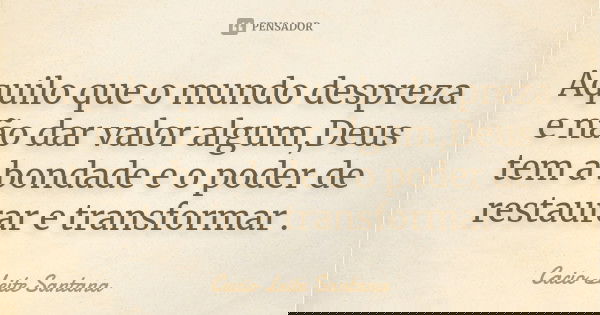 PENSADOR
Aquilo que o mundo despreza
e não dar valor algum,Deus
tem a bondade e o poder de
restaurar e transformar .
Cacio Leite Santana